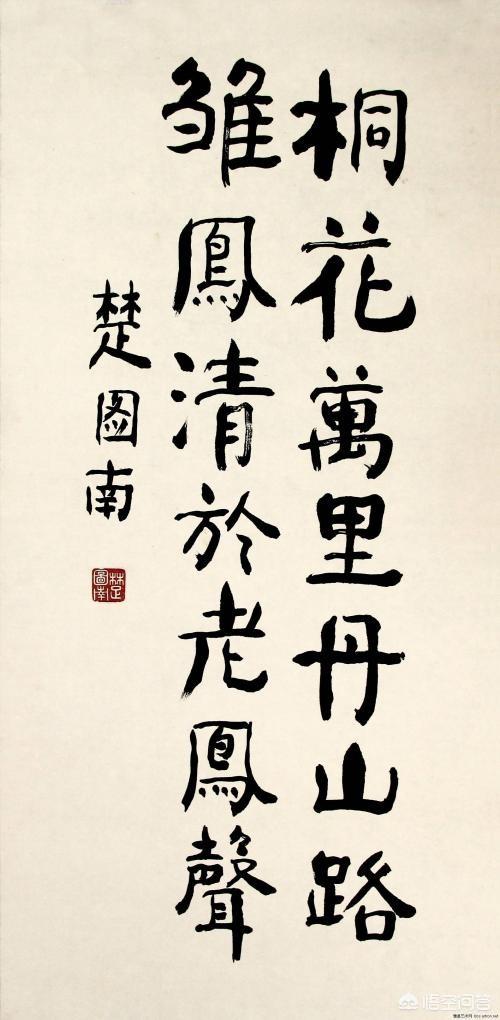 桐花萬里丹山路
雛鳳清於老鳳聲
楚图南
楚圖南
悟空问答